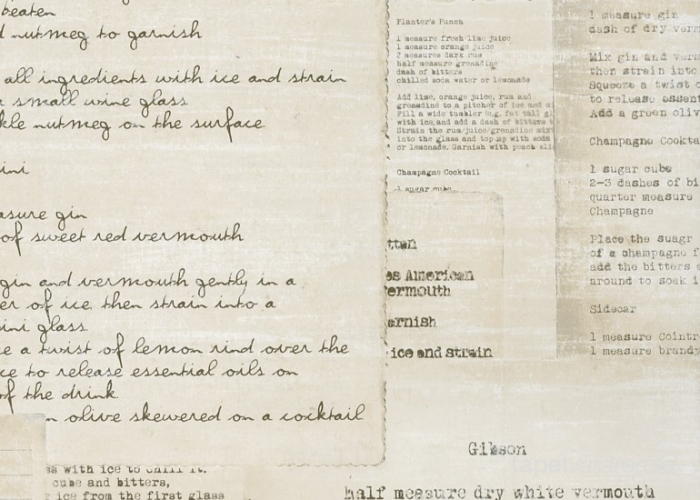 beaten
nutmeg to garnish
all ingredients with ice and strain
small wine glass
nutmeg on the surface
gin
of sweet red vermouth
gin and vermouth gently in a
of ice then strain into a
glass
a twist of lemon rind over the
to release essential oils on
of the drink
olive skewered on a cocktail
with ice to chill it.
cube and bitters,
ice from the first glass
Planter's Punch
1 measure fresh lime juice
1 measure orange juice
2 measures dark rum
half measure grenadine
dash of bitters
chilled soda water or lemonade
Add lime, orange juice, rum and
grenadine to a pitcher of ice and
Fill a wide tumbler (e.g. fat tall
with ice and add a dash of bitters
Strain the rum/juice/grenadine
into the glass and top up with soda
or lemonade. Garnish with peach
Champagne Cocktail
1 sugar cube
American
ice and strain
Gibson
half measure dry white vermouth
1 measure gin
dash of dry
Mix gin and
then strain into
Squeeze a twist
to release
Add a green
Champagne
1 sugar cube
2-3 dashes of
quarter measure
Champagne
Place the suagr
of a champagne
add the bitters
around to soak
Sidecar
1 measure
1 measure